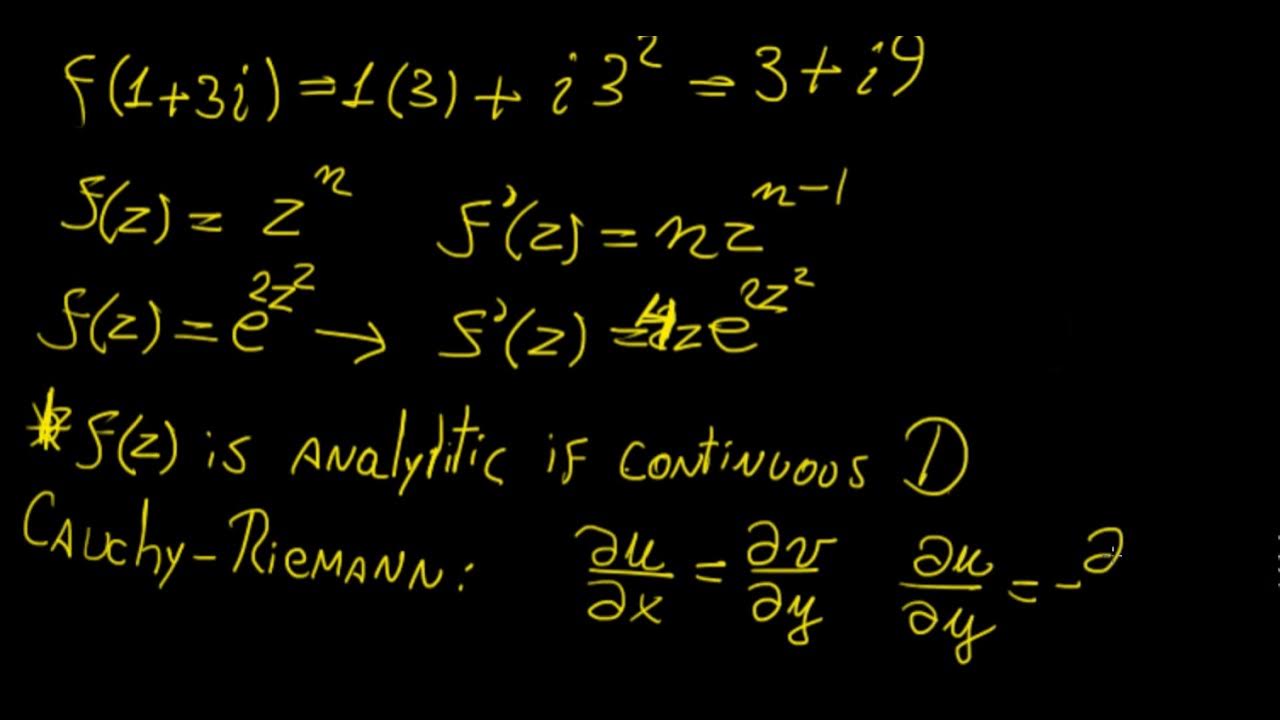 f(1+3i) = 1(3) + i3² = 3 + i9
f(z) = zⁿ f'(z) = nzⁿ⁻¹
f(z) = e^{2z²} → f'(z) = 4ze^{2z²}
* f(z) is ANAlytitic if continuous D
CAUchy-RiemANN: ∂u/∂x = ∂v/∂y ∂u/∂y = -∂